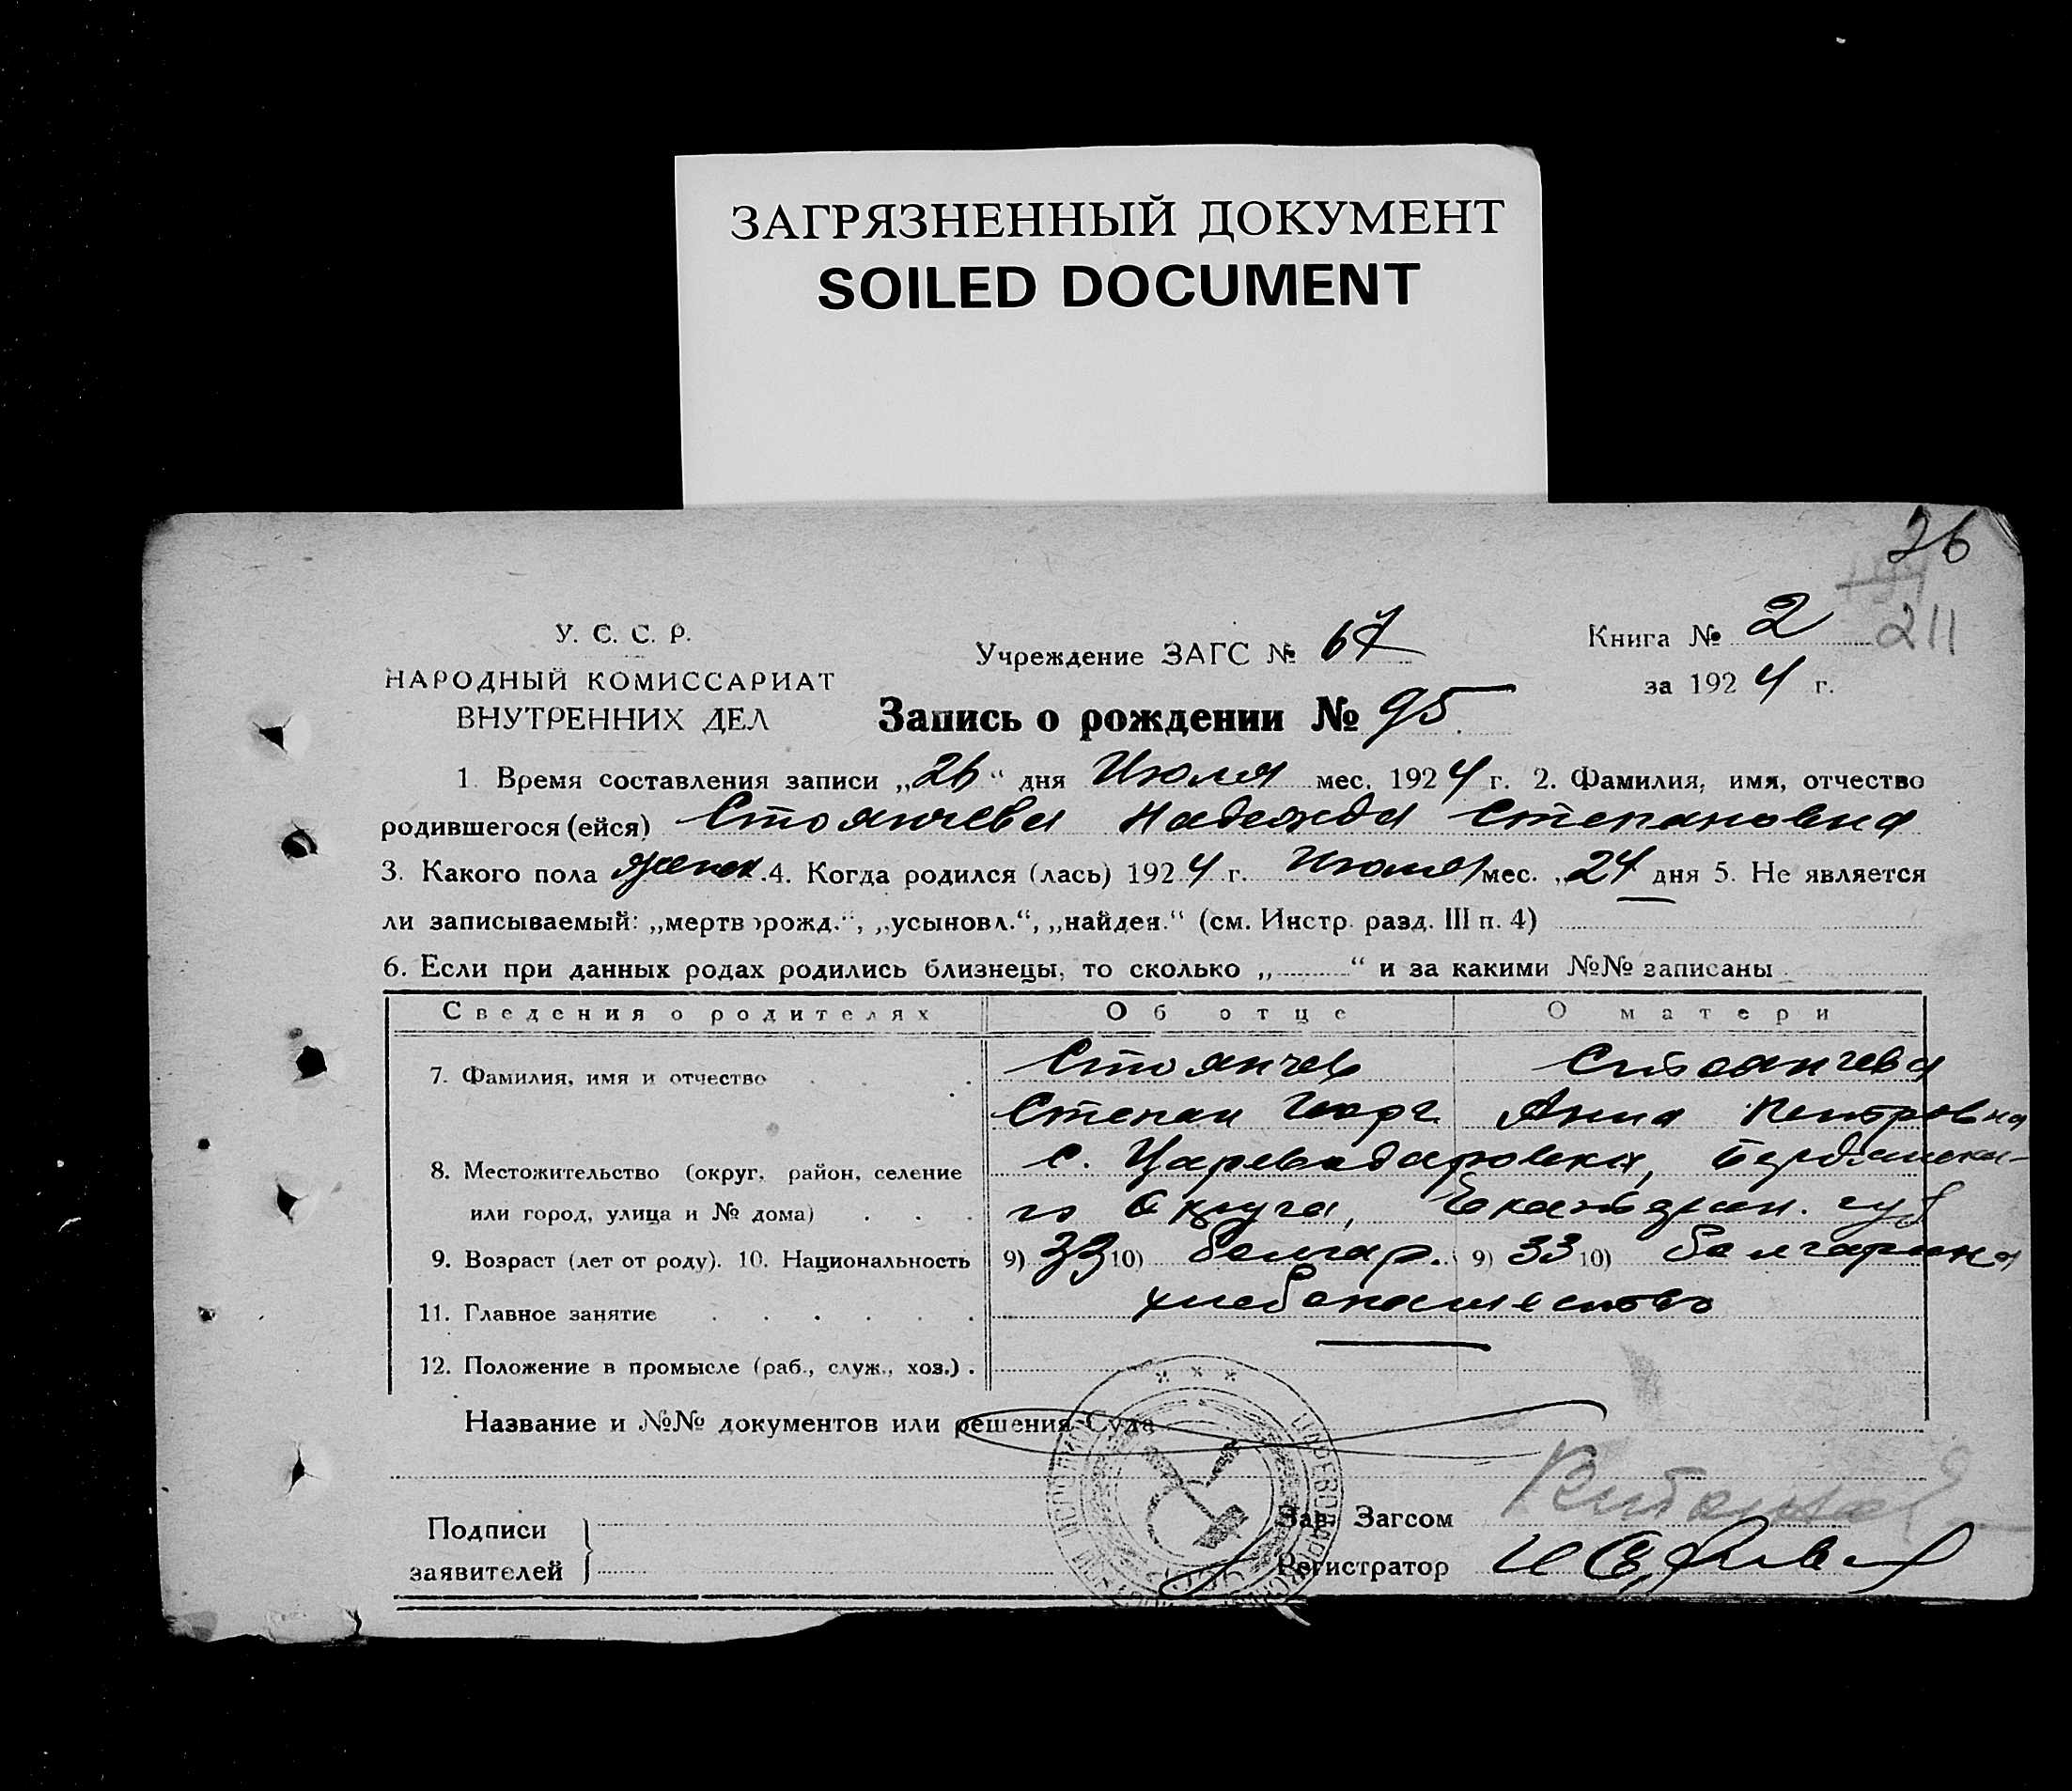 ЗАГРЯЗНЕННЫЙ ДОКУМЕНТ
SOILED DOCUMENT
26
211
У. С. С. Р.
НАРОДНЫЙ КОМИССАРИАТ
ВНУТРЕННИХ ДЕЛ
Учреждение ЗАГС № 67
Книга № 2
за 1924 г.
Запись о рождении № 95
1. Время составления записи „26“ дня Июля мес. 1924 г. 2. Фамилия, имя, отчество
родившегося (ейся) Стоянчева Надежда Степановна
3. Какого пола женск. 4. Когда родился (лась) 1924 г. Июля мес. „24 дня 5. Не является
ли записываемый: „мертворожд.“, „усыновл.“, „найден.“ (см. Инстр. разд. III п. 4)
6. Если при данных родах родились близнецы, то сколько „ “ и за какими №№ записаны
Сведения о родителях Об отце О матери
7. Фамилия, имя и отчество Стоянчев Стоянчева
Степан Георг. Анна Петровна
8. Местожительство (округ, район, селение с. Цареводаровка, Бердянска-
или город, улица и № дома) го Округа, Екатерин. губ
9. Возраст (лет от роду). 10. Национальность 9) 33 10) болгар. 9) 33 10) болгарка
11. Главное занятие хлебопашество
12. Положение в промысле (раб., служ., хоз.)
Название и №№ документов или решения Суда
Подписи
заявителей
Зав. Загсом
Регистратор